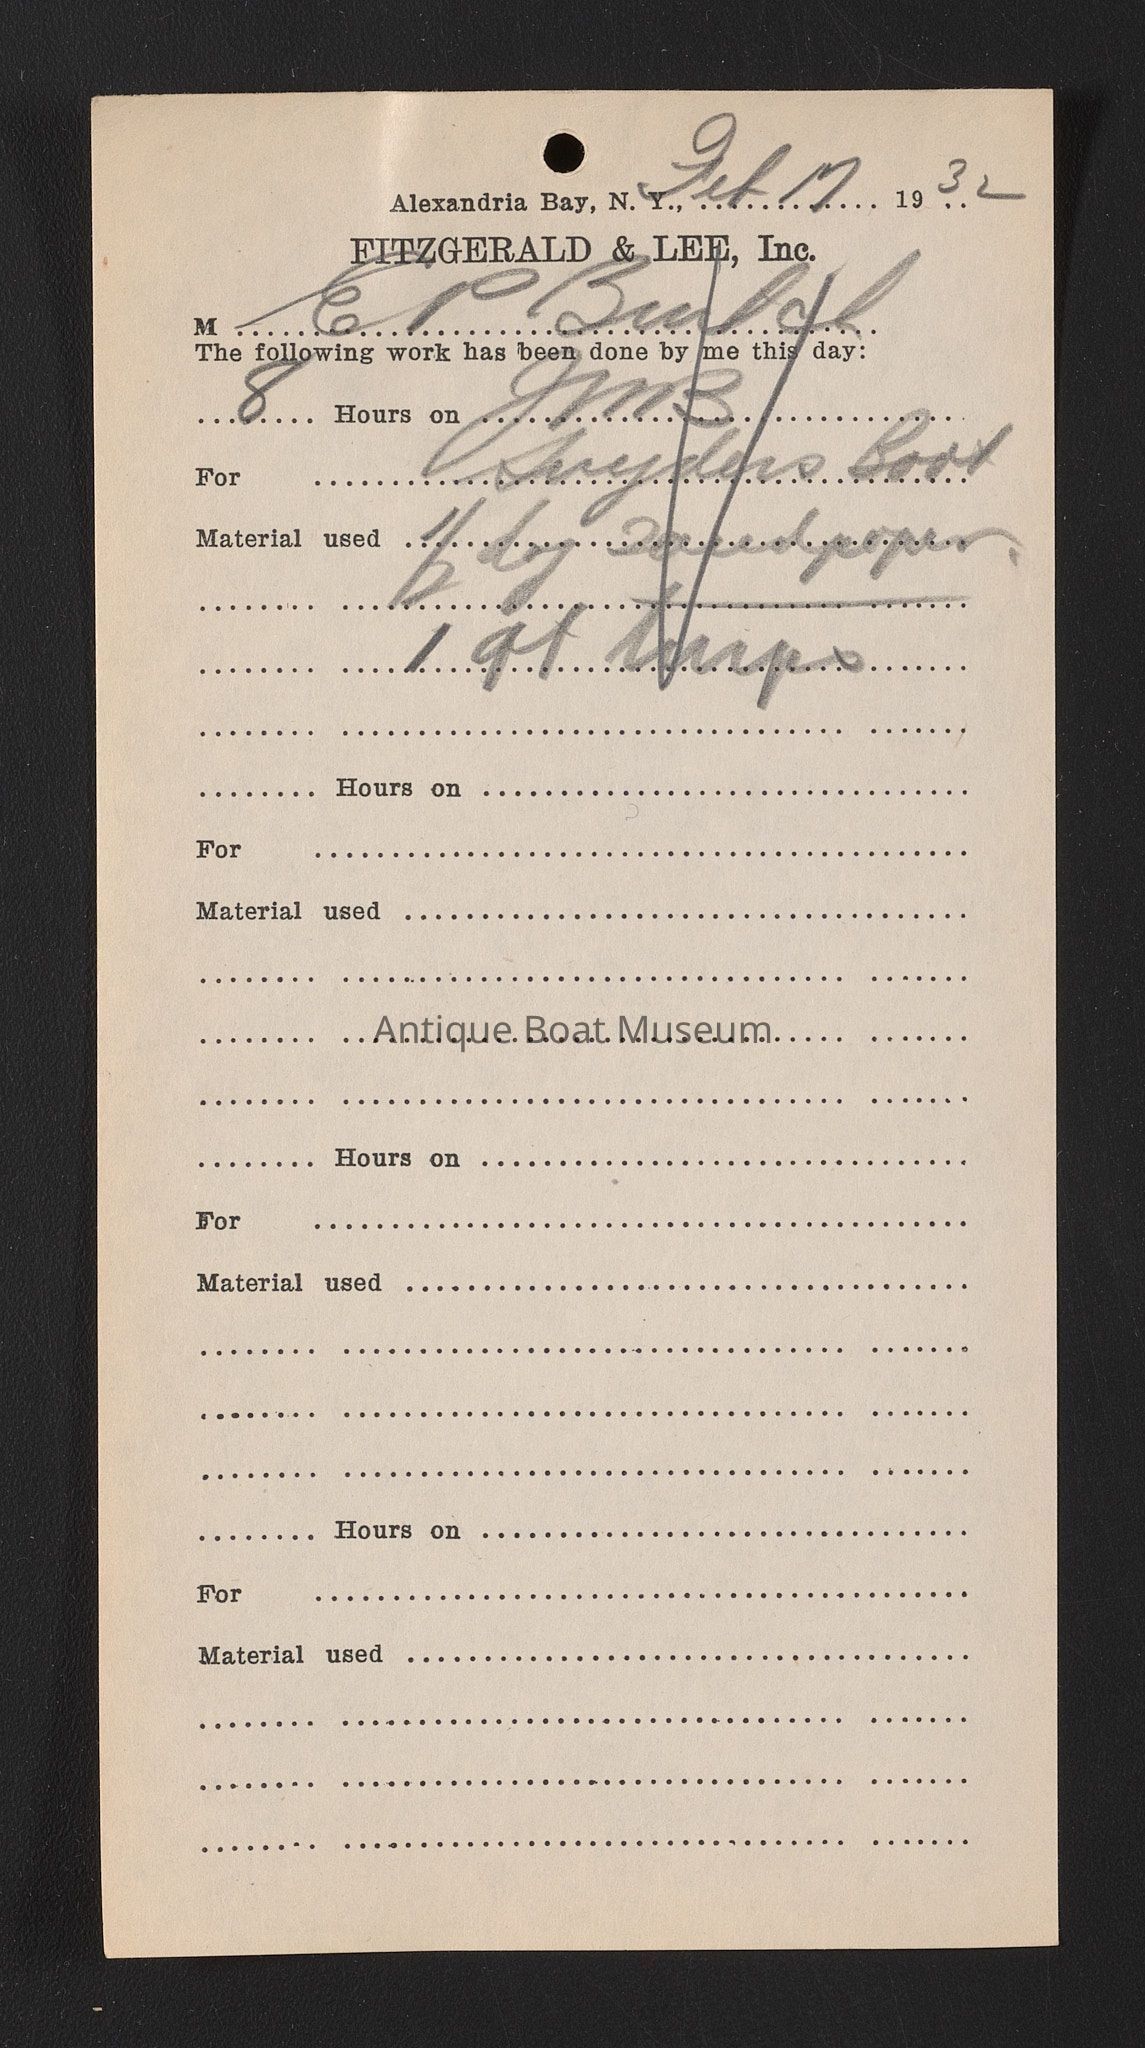 Alexandria Bay, N. Y., Feb 17 1932
FITZGERALD & LEE, Inc.
M E P
The following work has been done by me this day:
8 Hours on
For Snyders Boat
Material used 1/2 dz Sandpaper
1 qt turps
Hours on
For
Material used
Antique Boat Museum
Hours on
For
Material used
Hours on
For
Material used